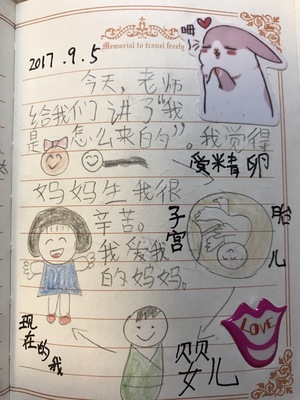 2017.9.5
Memorial to travel freely
呣
今天，老师
给我们讲了“我
是怎么来的”。我觉得
受精卵
妈妈生我很
辛苦。
子宫
胎儿
我爱我
的妈妈。
现在的我
婴儿
LOVE